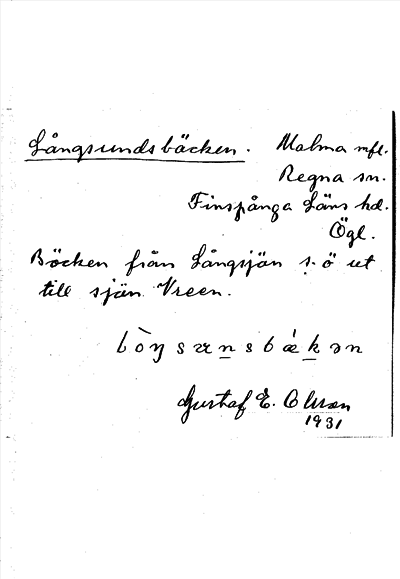 Långsundsbäcken. Malma mfl.
Regna sn.
Finspånga Läns hd.
Ögl.
Bäcken från Långsjön s.ö ut
till sjön Vreen.
lòŋsɯnsbǽkən
Gustaf E. Olsson
1931